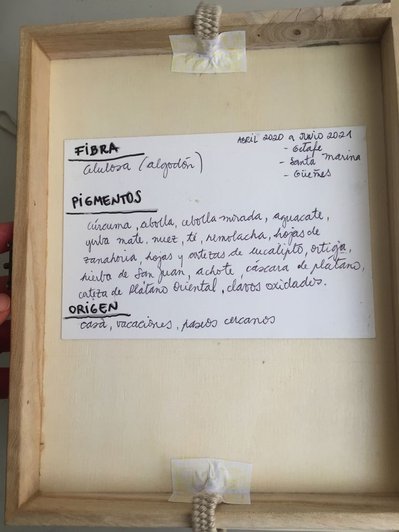 FIBRA
Celulosa (algodón)
ABRIL 2020 a JUNIO 2021
- Getafe
- Santa Marina
- Güeñes
PIGMENTOS
cúrcuma, cebolla, cebolla morada, aguacate,
yerba mate, nuez, té, remolacha, hojas de
zanahoria, hojas y cortezas de eucalipto, ortiga,
hierba de San Juan, achote, cáscara de plátano,
corteza de Plátano Oriental, clavos oxidados.
ORIGEN
casa, vacaciones, paseos cercanos